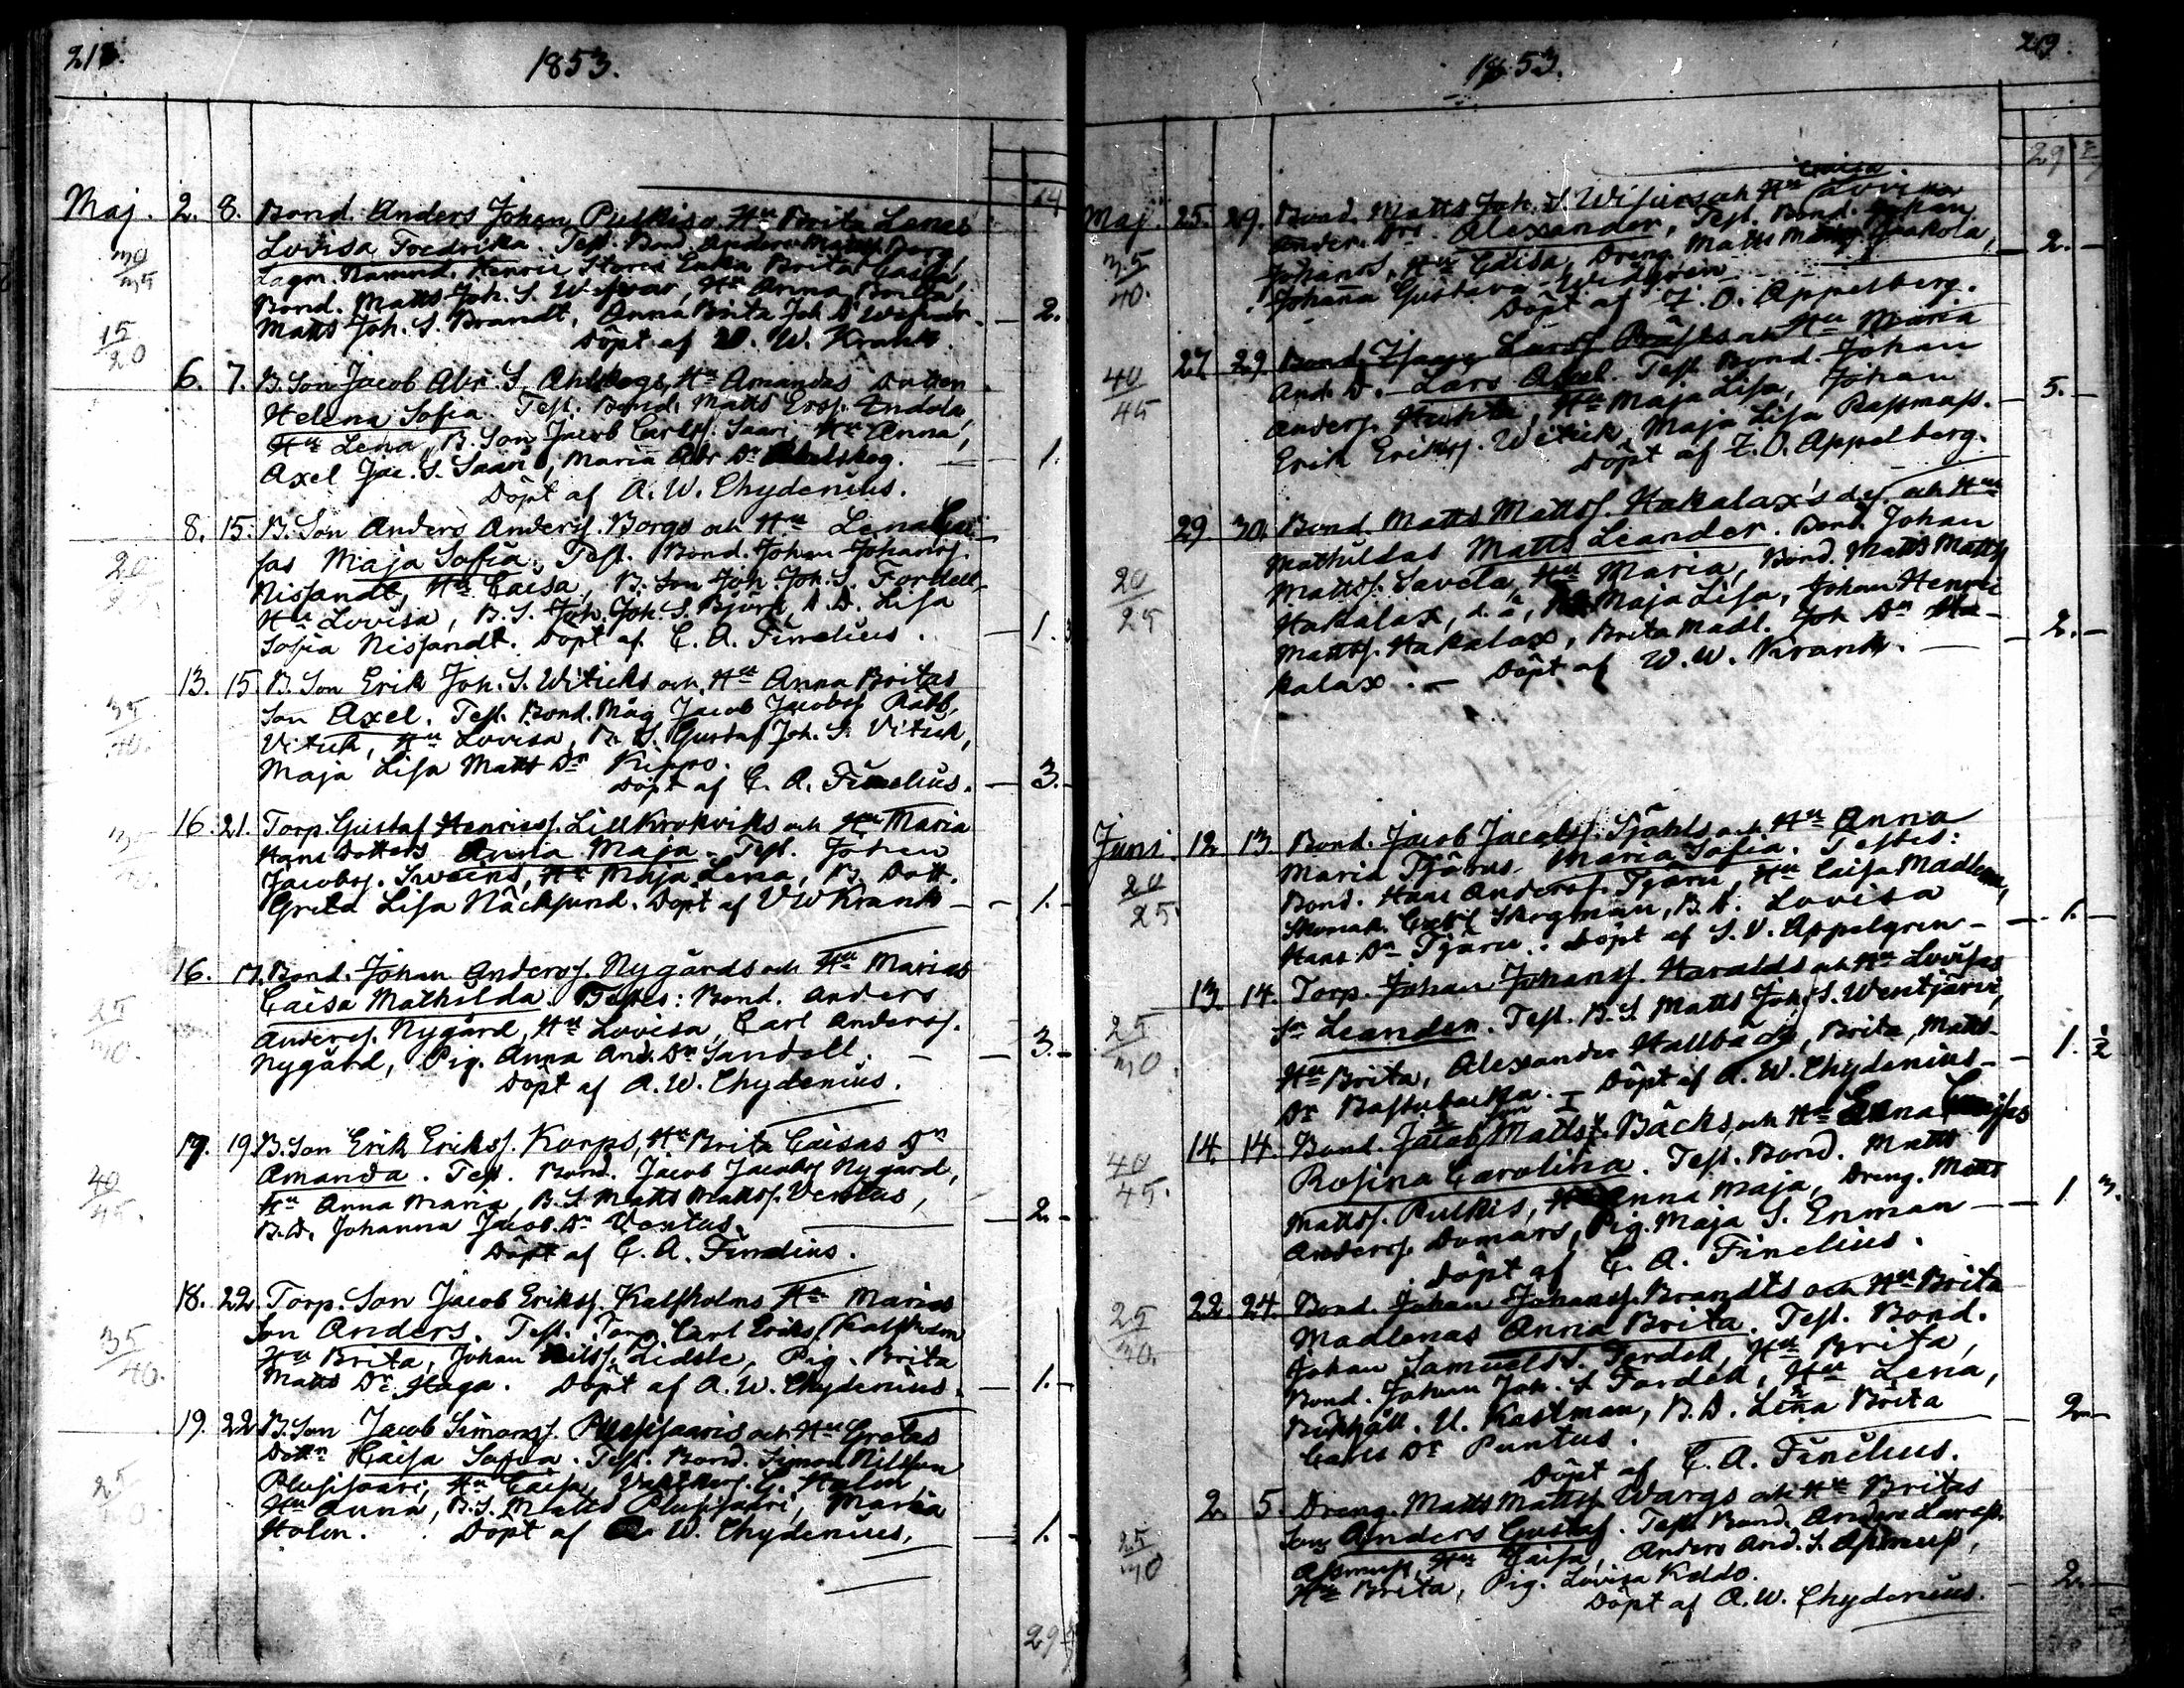 218.
1853.
14
Maj. 2. 8. Bond. Anders Johan Pulkis o. Hu Brita Lenas
Lovisa Fredrika. Test. Bond. Anders Borg,
30/35 Lagm. Nämnd. Henric Enka Brita Caisa,
Bond. Matts Joh. S. Hu Anna Brita,
Matts Joh. S. Brandt, Anna Brita Joh. D. — 2.
15/20 Döpt af W. W. Krank.
6. 7. B. Son Jacob Abr. S. Hu Amandas Dotter
Helena Sofia. Test. Bond. Matts Erss. Indola,
Hu Lena, B. Son Jacob Carlss. Saari, Hu Anna,
Axel Jac. S. Saari, Maria Abr. Dr — 1.
Döpt af A. W. Chydenius.
8. 15. B. Son Anders Anderss. Borgs och Hu Lena Cai-
sas Maja Sofia. Test. Bond. Johan Johanss.
20 Nissandt, Hu Caisa, B. Son Joh. Joh. S. Fordell,
Hu Lovisa, B. S. Joh. Joh. S. Björk, B. D. Lisa
Sofia Nissandt. Döpt af C. A. Finelius. — 1.
13. 15. B. Son Erik Joh. S. Witicks och Hu Anna Britas
35/40. Son Axel. Test. Bond. Måg Jacob Jacobss. Rabb,
Vitick, Hu Lovisa, B. S. Gustaf Joh. S. Vitick,
Maja Lisa Matts Dr Kippo.
Döpt af C. A. Finelius. — 3. —
16. 21. Torp. Gustaf Henricss. Lillkrokviks och Hu Maria
Hans Dotters Anna Maja. Test. Johan
Jacobss. Sweens, Hu Maja Lena, B. Dott.
Greta Lisa Näcksund. Döpt af W W Krank — 1. —
16. 17. Bond. Johan Anderss. Nygårds och Hu Marias
Caisa Mathilda. Testes: Bond. Anders
25/30. Anderss. Nygård, Hu Lovisa, Carl Anderss.
Nygård, Pig. Anna And. Dr Sandell. — 3. —
Döpt af A. W. Chydenius.
17. 19. B. Son Erik Erikss. Korps, Hu Brita Caisas Dr
Amanda. Test. Bond. Jacob Jacobss. Nygård,
40/45. Hu Anna Maria, B. S. Matts Mattss. Ventus,
B. D. Johanna Jacob. Dr Ventus. — 2. —
Döpt af C. A. Finelius.
18. 22. Torp. Son Jacob Erikss. Kalfholms Hu Marias
Son Anders. Test. Torp. Carl Erikss. Kalfholm
35/40. Hu Brita, Johan Nilss. Lidsle, Pig. Brita
Matts Dr Haga. Döpt af A. W. Chydenius. — 1. —
19. 22. B. Son Jacob Simonss. Plusisaaris och Hu Gretas
Dottr Caisa Sofia. Test. Bond. Simon Nilsson
25 Plusisaari, Hu Caisa, G. Holm
Hu Anna, B. S. Matts Plusisaari, Maria
Holm. Döpt af A. W. Chydenius. — 1. —
29
1853.
219.
29
Maj. 25. 29. Bond. Matts Joh. S. och Hu Caisa
Anders Drs Alexander, Test. Bond. Johan
35/40. Johanss, Hu Caisa, Dreng. Matts Jaakola, — 2. —
Johanna Gustava Widgrén
Döpt af Z. O. Appelberg.
27. 29. Bond. Larss. och Hu Maria
40/45 And. D. Lars Axel. Test. Bond. Johan
Anderss. Huhta, Hu Maja Lisa, Johan — 5. —
Erik Erikss. Witick, Maja Lisa Rassmass.
Döpt af Z. O. Appelberg.
29. 30. Bond. Matts Mattss. Hakalax's d. y. och Hus
Mathildas Matts Leander. Bond. Johan
20/25 Mattss. Savela, Hu Maria, Bond. Matts Mattss.
Hakalax, d. ä, Hu Maja Lisa, Johan Henric
Mattss. Hakalax, Brita Madl. Joh. Dr Ha- — 2. —
kalax. — Döpt af W. W. Krank. —
Juni. 12. 13. Bond. Jacob Jacobss. Sjöhls och Hu Anna
Maria Tjärus Maria Sofia. Testes:
20/25 Bond. Hans Anderss. Tjäru, Hu Caisa Madlena,
Skomak. Skogman, B. D. Lovisa
Hans Dr Tjäru. Döpt af S. V. Appelgren — 1. —
13. 14. Torp. Johan Johanss. Haralds och Hu Lovisas
Sn Leander. Test. B. S. Matts Joh. S. Wentjärvi,
25/30. Hu Brita, Alexander Hallbäck, Brita Matts — 1. ½
Dr Bastubacka. — Döpt af A. W. Chydenius —
14. 14. Bond. Son Jacob Mattss. Bäcks och Hu Anna Caisas
40/45. Rosina Carolina. Test. Bond. Matts
Mattss. Pulkis, Hu Anna Maja, Dreng. Matts
Anderss. Domars, Pig. Maja S. Enman — 1. 3.
Döpt af C. A. Finelius.
22. 24. Bond. Johan Johanss. Brandts och Hu Brita
25/30. Madlenas Anna Brita. Test. Bond.
Johan Samuelss. Fordell, Hu Brita,
Bond. Johan Joh. S. Fordell, Hu Lena,
Bokhåll. U. Kastman, B. D. Lena Brita
Carls Dr Puntus. — 2. —
Döpt af C. A. Finelius.
2. 5. Dreng. Matts Mattss. Wargs och Hu Britas
25/30 Son Anders Gustaf. Test. Bond. Anders Larss.
Hu Caisa, Anders And. S.
Hu Brita, Pig. Lovisa Kaldo. — 2. —
Döpt af A. W. Chydenius.